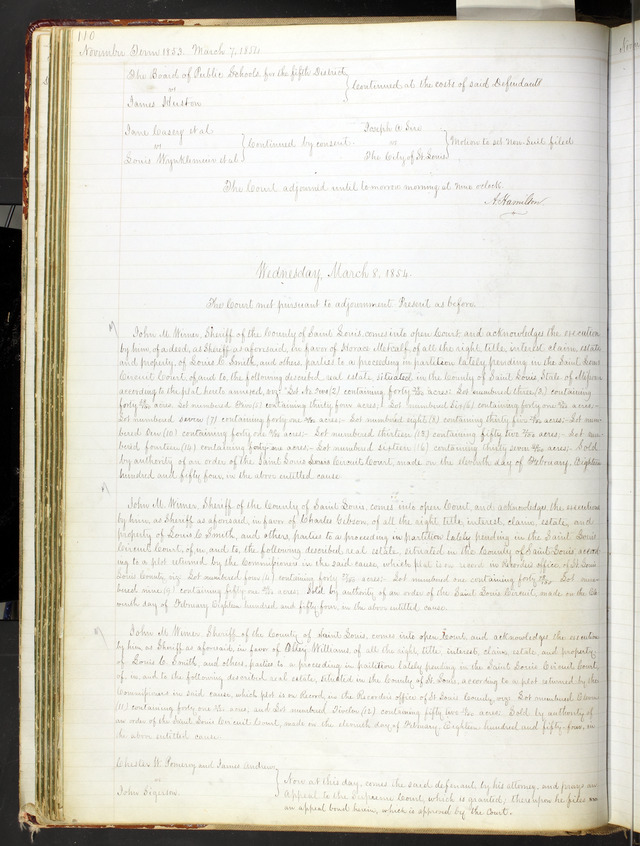 110
November Term 1853. March 7, 1854
The Board of Public Schools for the fifth District
vs
James
Continued at the costs of said Defendant
Jane Casey et al
vs
Louis et al
Continued by consent.
Joseph
vs
The City of St Louis
Motion to set Non-Suit filed
The Court adjourned until tomorrow morning at nine oclock.
A. Hamilton
Wednesday, March 8, 1854.
The Court met pursuant to adjournment. Present as before
John M. Wimer, Sheriff of the County of Saint Louis comes into open Court and acknowledges the execution
by him, of a deed, as Sheriff as aforesaid, in favor of Horace Metcalf, of all the right, title, interest, claim, estate
and property, of Louis C. Smith, and others, parties to a proceeding in partition lately pending in the Saint Louis
Circuit Court, of and to, the following described real estate, situated in the County of Saint Louis State of Missouri
according to the plat hereto annexed, viz: Lot No Two (2) containing forty acres: Lot numbered three (3) containing
forty acres Lot numbered (5) containing thirty four acres; Lot numbered six (6) containing forty one acres:-
Lot numbered seven (7) containing forty one acres:- Lot numbered eight (8) containing thirty five acres:- Lot num-
bered ten (10) containing forty one acres:- Lot numbered thirteen (13) containing fifty two acres:- Lot num-
bered fourteen (14) containing forty one acres:- Lot numbered sixteen (16) containing thirty seven acres:- Sold
by authority of an order of the Saint Louis Circuit Court, made on the eleventh day of February, Eighteen
hundred and fifty four, in the above entitled cause
John M. Wimer, Sheriff of the County of Saint Louis, comes into open Court, and acknowledges the execution
by him, as Sheriff as aforesaid, in favor of Charles Gibson, of all the right, title, interest, claim, estate, and
property of Louis C Smith, and others, parties to a proceeding in partition lately pending in the Saint Louis
Circuit Court, of, in, and to, the following described real estate, situated in the County of Saint Louis accord-
ing to a plat returned by the Commissioners in the said cause, which plat is on record in Recorders office of St Louis
Louis County, viz: Lot numbered four (4) containing forty acres:- Lot numbered one containing forty Lot num-
bered nine (9) containing fifty acres; Sold by authority of an order of the Saint Louis Circuit, made on the Ele-
venth day of February Eighteen hundred and fifty four, in the above entitled cause.
John M. Wimer Sheriff of the County of Saint Louis, comes into open Court and acknowledges the execution
by him, as Sheriff as aforesaid, in favor of Williams, of all the right, title, interest, claim, estate, and property
of Louis C. Smith, and others, parties to a proceeding in partition lately pending in the Saint Louis Circuit Court,
of, in, and to the following described real estate, situated in the County of St Louis, according to a plat returned by the
Commissioners in said cause, which plat is on Record, in the Recorders office of St Louis County, viz: Lot numbered Eleven
(11) containing forty one acres, and Lot numbered Twelve (12) containing fifty two acres: Sold by authority of
an order of the Saint Louis Circuit Court, made on the eleventh day of February, Eighteen hundred and fifty-four, in
the above entitled cause
Chester W. Pomeroy and James Andrews
vs
John Sigerson.
Now at this day, comes the said defendant by his attorney, and prays an
appeal to the Supreme Court, which is granted; thereupon he files
an appeal bond herein, which is approved by the Court.